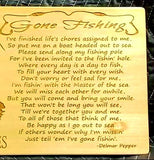 Gone Fishing
I've finished life's chores assigned to me,
So put me on a boat headed out to sea.
Please send along my fishing pole
For I've been invited to the fishin' hole.
Where every day is a day to fish,
To fill your heart with every wish.
Don't worry, or feel sad for me,
I'm fishin' with the Master of the sea.
We will miss each other for awhile,
But you will come and bring your smile.
That won't be long you will see,
Till we're together you and me.
To all of those that think of me,
Be happy as I go out to sea.
If others wonder why I'm missin'
Just tell 'em I've gone fishin'
-Delmar Pepper
ES